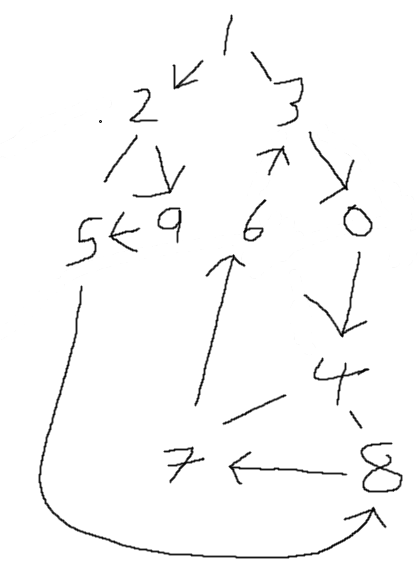 1
2 3
5 9 6 0
4
7 8